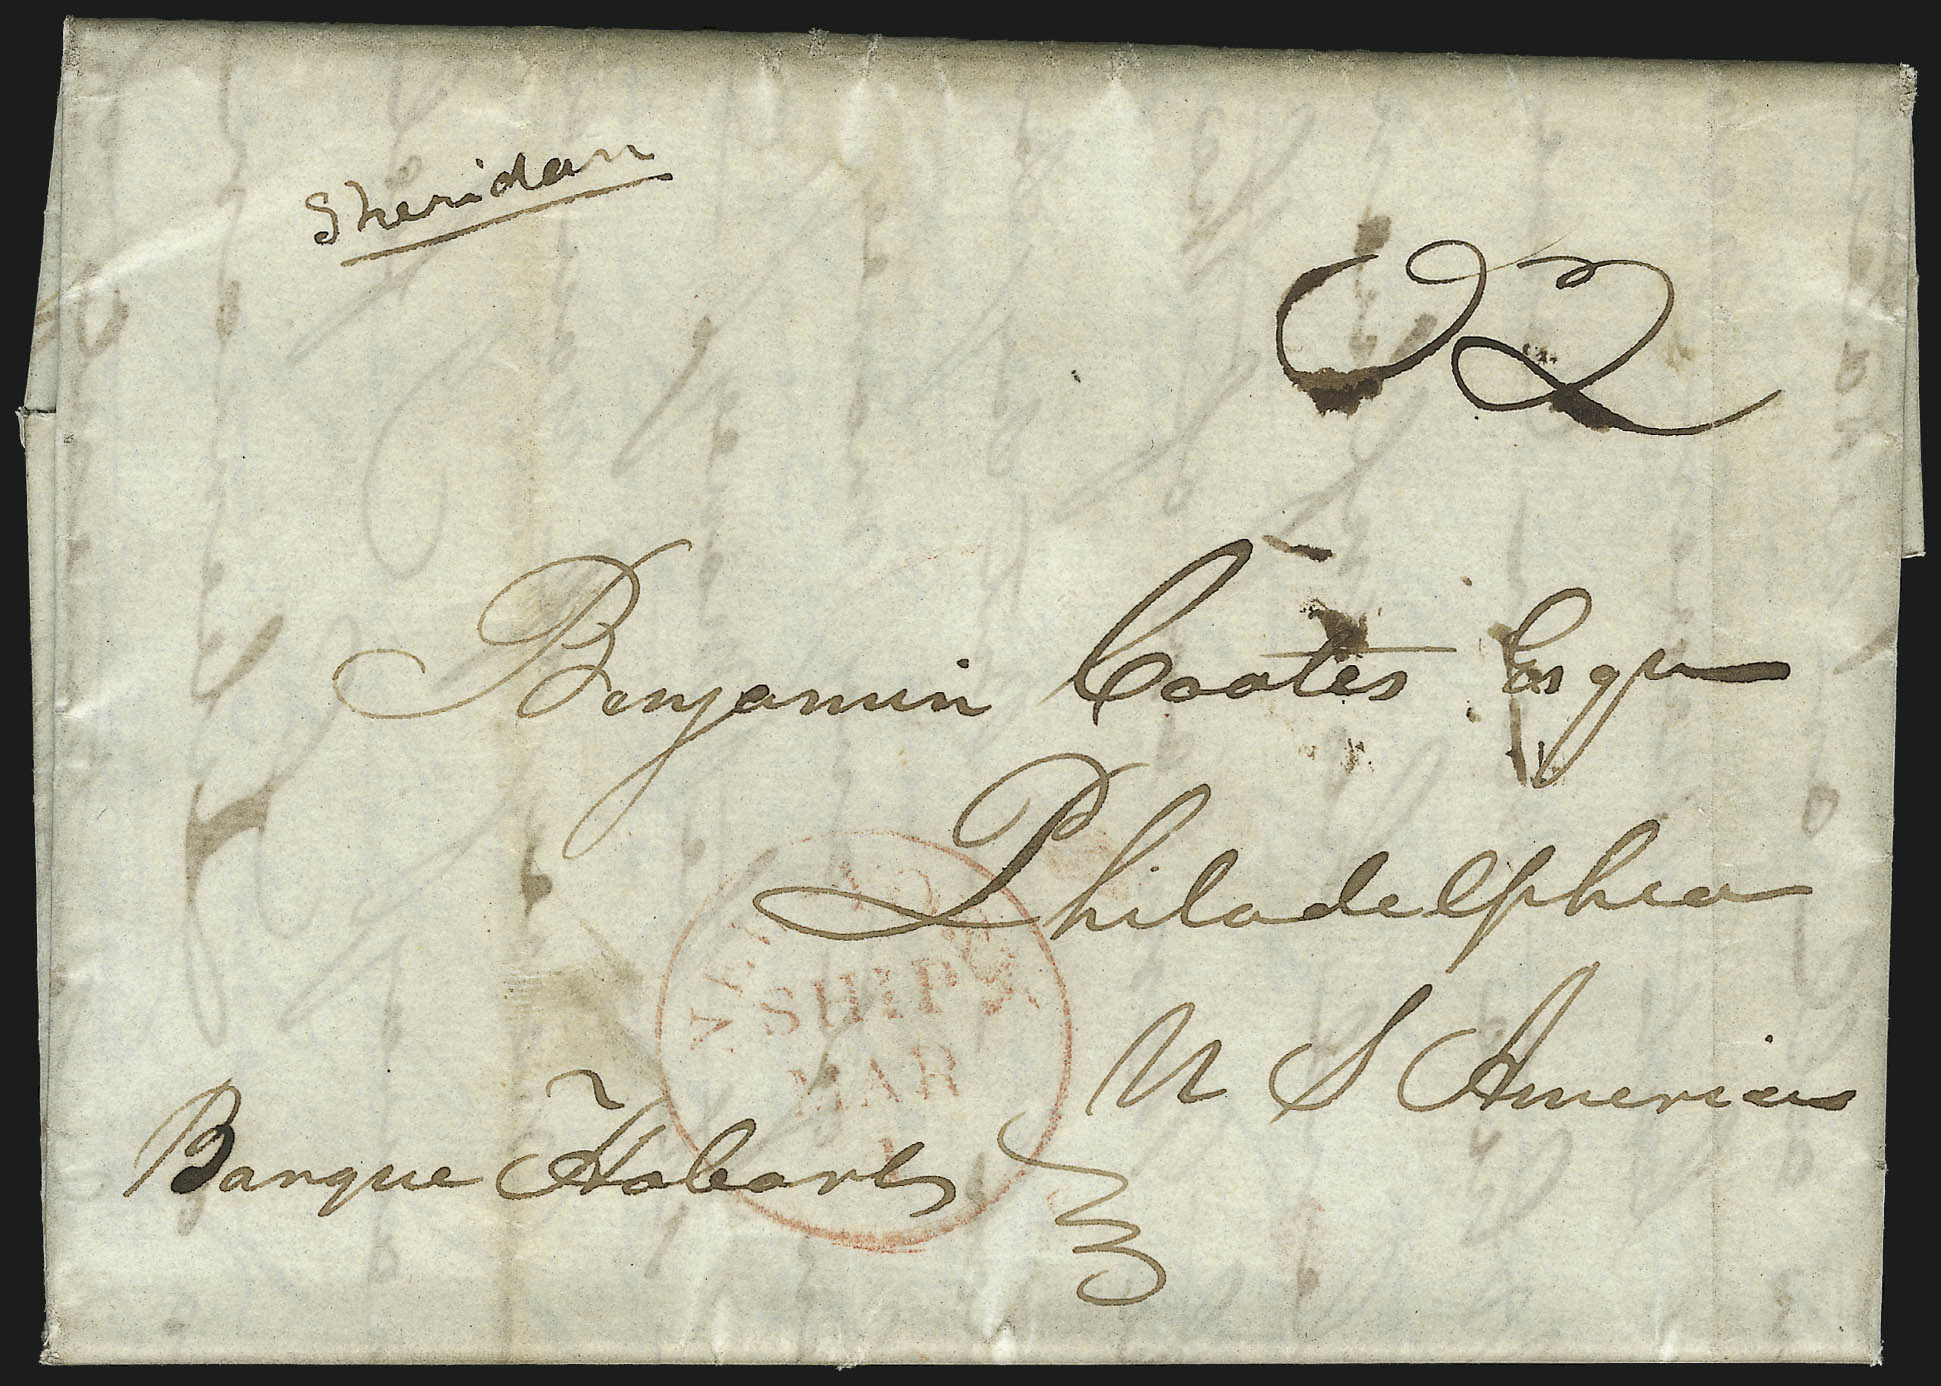 Sheridan
Benjamin Coates Esqr
Philadelphia
U S America
Barque Hobart
NEW YORK
SHIP
MAR
1